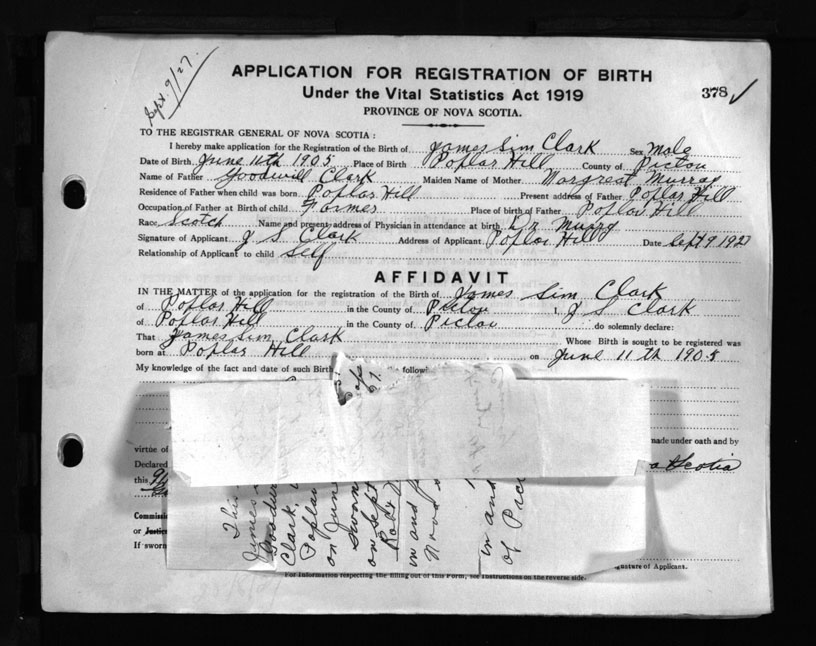 Sept. 9/27.
APPLICATION FOR REGISTRATION OF BIRTH
Under the Vital Statistics Act 1919
378 ✓
PROVINCE OF NOVA SCOTIA.
TO THE REGISTRAR GENERAL OF NOVA SCOTIA:
I hereby make application for the Registration of the Birth of James Sim Clark Sex Male
Date of Birth June 11th 1905 Place of Birth Poplar Hill County of Pictou
Name of Father Goodwill Clark Maiden Name of Mother Margreat Murray
Residence of Father when child was born Poplar Hill Present address of Father Poplar Hill
Occupation of Father at Birth of child Farmer Place of birth of Father Poplar Hill
Race Scotch Name and present address of Physician in attendance at birth Dr
Signature of Applicant J S Clark Address of Applicant Poplar Hill Date Sept 9 1927
Relationship of Applicant to child Self
AFFIDAVIT
IN THE MATTER of the application for the registration of the Birth of James Sim Clark
of Poplar Hill in the County of Pictou I, J S Clark
of Poplar Hill in the County of Pictou do solemnly declare:
That James Sim Clark Whose Birth is sought to be registered was
born at Poplar Hill on June 11th 1905
My knowledge of the fact and date of such Birth
made under oath and by
virtue of
Declared a Scotia
this 9
This
James
Clark
Poplar
on June
Sworn
on Sept
in and
Nova
in and
of Pic
Commissi
or Justice
If sworn
Signature of Applicant.
For Information respecting the filling out of this Form, see Instructions on the reverse side.